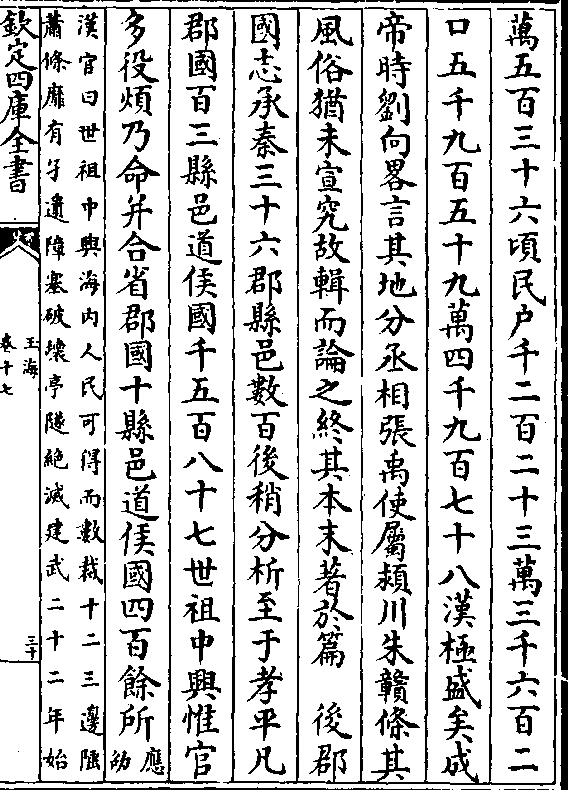 萬五百三十六頃民戶千二百二十三萬三千六百二
口五千九百五十九萬四千九百七十八漢極盛矣成
帝時劉向畧言其地分丞相張禹使屬潁川朱贛條其
風俗猶未宣究故輯而論之終其本末著於篇　後郡
國志承秦三十六郡縣邑數百後稍分析至于孝平凡
郡國百三縣邑道侯國千五百八十七世祖中興惟官
多役煩乃命并合省郡國十縣邑道侯國四百餘所應
劭
漢官曰世祖中興海内人民可得而數裁十二三邊陲
蕭條靡有孑遺障塞破壞亭隧絶滅建武二十二年始
欽定四庫全書
玉海
卷十七
三十